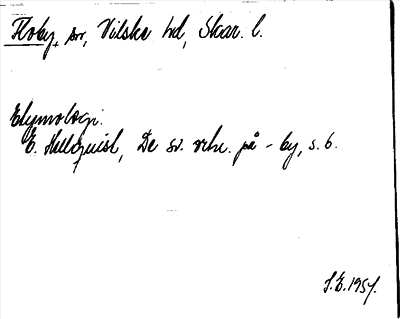 Floby, sn, Vilske hd, Skar. l.
Etymologi.
E. Hellquist, De sv. ortn. på - by, s. 6.
S.E. 1957.